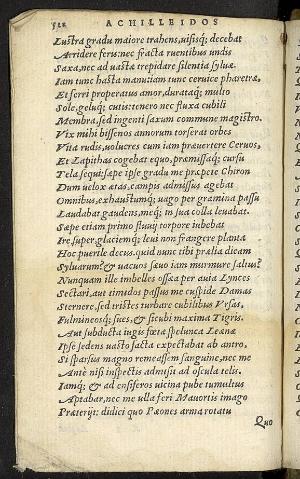 ACHILLEIDOS
Lustra gradu maiore trahens, uisisq; decebat
Arridere feris: nec fracta ruentibus undis
Saxa, nec ad uasta trepidare silentia syluæ.
Iam tunc hasta manu, iam tunc ceruice pharetræ,
Et ferri properatus amor, durataq; multo
Sole, geluq; cutis: tenero nec fluxa cubili
Membra, sed ingenti saxum commune magistro.
Vix mihi bissenos annorum torserat orbes
Vita rudis, uolucres cum iam præuertere Ceruos,
Et Lapithas cogebat equo, præmissaq; cursu
Tela sequi: sæpe ipse gradu me præpete Chiron
Dum uelox ætas, campis admissus agebat
Omnibus, exhaustumq; uago per gramina passu
Laudabat gaudens, meq; in sua colla leuabat.
Sæpe etiam primo fluuij torpore iubebat
Ire super, glaciemq; leui non frangere planta
Hoc puerile decus. quid nunc tibi prælia dicam
Syluarum? & uacuos sæuo iam murmure saltus?
Nunquam ille imbelles ossæa per auia Lynces
Sectari, aut timidos passus me cuspide Damas
Sternere, sed tristes turbare cubilibus Vrsas,
Fulmineosq; sues, & sicubi maxima Tigris.
Aut subducta iugis fœta spelunca Leænæ
Ipse sedens uasto facta expectabat ab antro,
Si sparsus magno remeassem sanguine, nec me
Antè nisi inspectis admisit ad oscula telis.
Iamq; & ad ensiferos uicina pube tumultus
Aptabar, nec me ulla feri Mauortis imago
Præterijt: didici quo Pæones arma rotatu
Quo